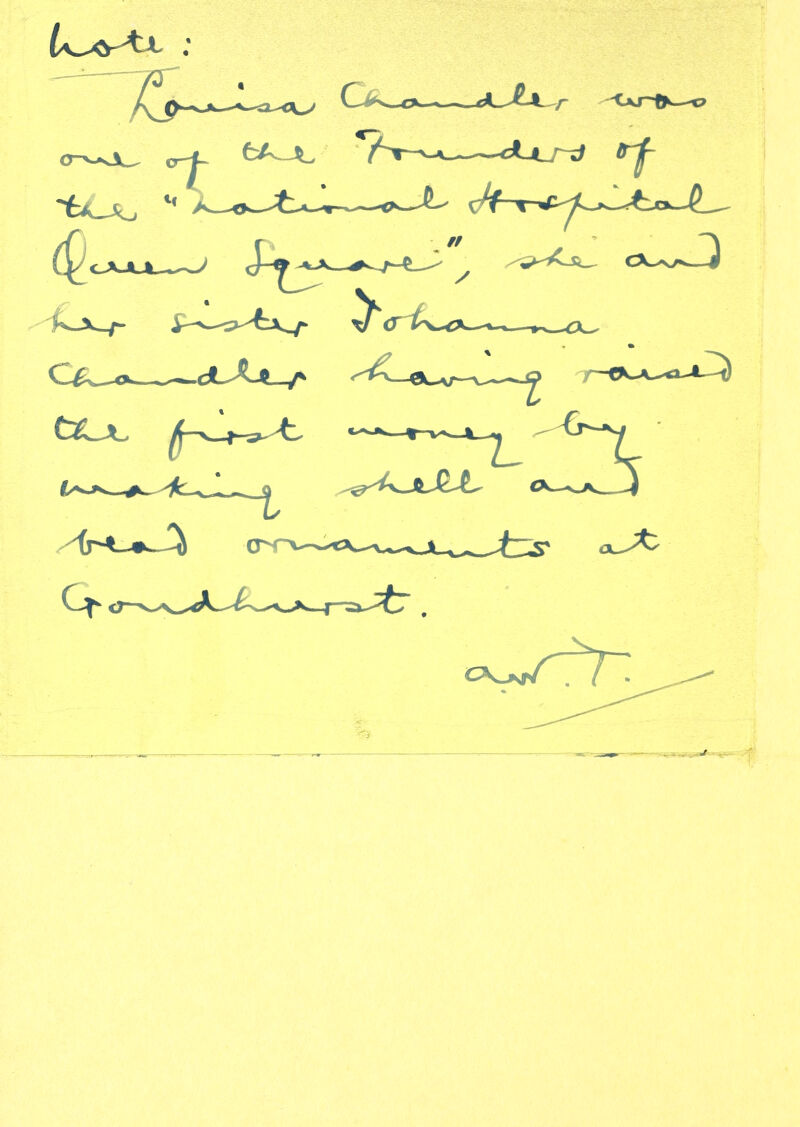 Note:
Louisa Chandler was
one of the Founders of
the "National Hospital
Queen Square", she and
her sister Johanna
Chandler having raised
the first money by
making shell and
bead ornaments at
Goudhurst.
A.W.T.